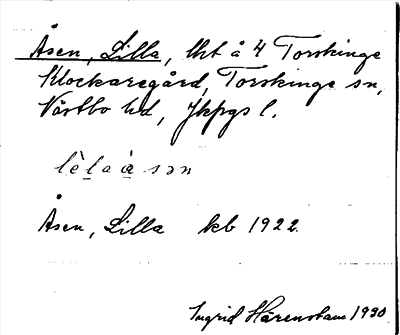 Åsen, Lilla, lht å 4 Torskinge
Klockaregård, Torskinge sn,
Västbo hd, Jkpgs l.
lèla à sən
Åsen, Lilla kb 1922.
Ingrid Härenstam 1930